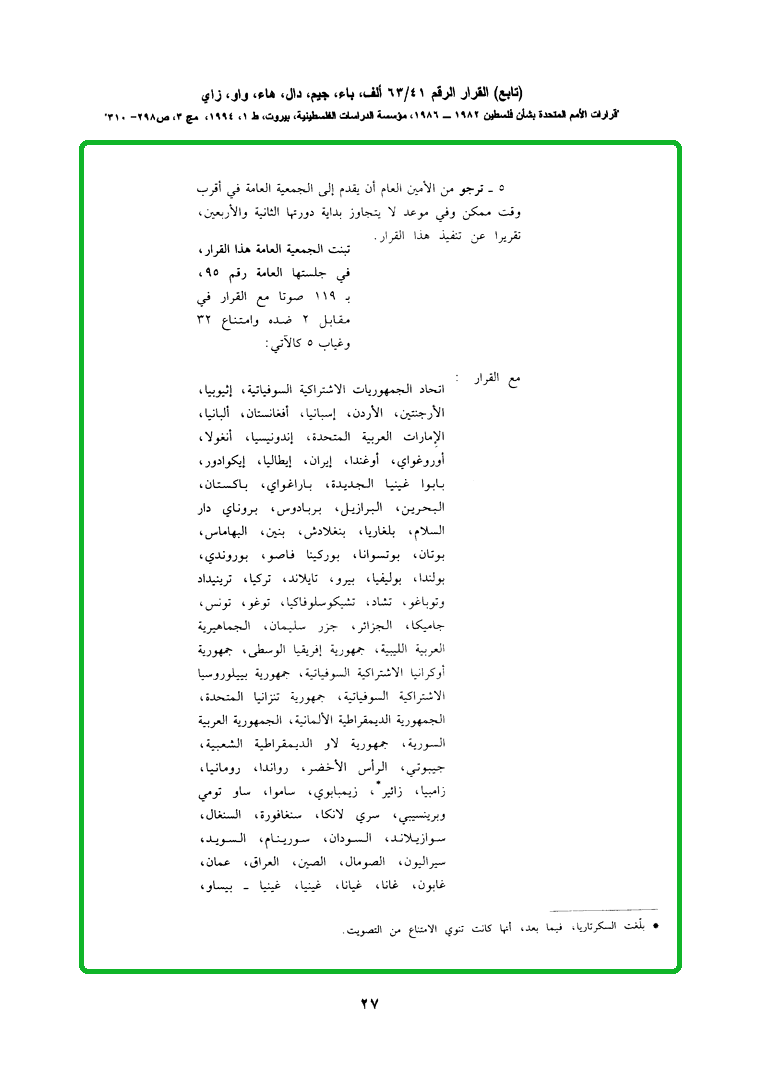 (تابع) القرار الرقم ٦٣/٤١ ألف، باء، جيم، دال، هاء، واو، زاي
"قرارات الأمم المتحدة بشأن فلسطين ١٩٨٢ ــ ١٩٨٦، مؤسسة الدراسات الفلسطينية، بيروت، ط ١، ١٩٩٤، مج ٣، ص٢٩٨- ٣١٠"
٥ ـ ترجو من الأمين العام أن يقدم إلى الجمعية العامة في أقرب
وقت ممكن وفي موعد لا يتجاوز بداية دورتها الثانية والأربعين،
تقريرا عن تنفيذ هذا القرار.
تبنت الجمعية العامة هذا القرار،
في جلستها العامة رقم ٩٥،
بـ ١١٩ صوتا مع القرار في
مقابل ٢ ضده وامتناع ٣٢
وغياب ٥ كالآتي:
مع القرار :
اتحاد الجمهوريات الاشتراكية السوفياتية، إثيوبيا،
الأرجنتين، الأردن، إسبانيا، أفغانستان، ألبانيا،
الإمارات العربية المتحدة، إندونيسيا، أنغولا،
أوروغواي، أوغندا، إيران، إيطاليا، إيكوادور،
بابوا غينيا الجديدة، باراغواي، باكستان،
البحرين، البرازيل، بربادوس، بروناي دار
السلام، بلغاريا، بنغلادش، بنين، البهاماس،
بوتان، بوتسوانا، بوركينا فاصو، بوروندي،
بولندا، بوليفيا، بيرو، تايلاند، تركيا، ترينيداد
وتوباغو، تشاد، تشيكوسلوفاكيا، توغو، تونس،
جاميكا، الجزائر، جزر سليمان، الجماهيرية
العربية الليبية، جمهورية إفريقيا الوسطى، جمهورية
أوكرانيا الاشتراكية السوفياتية، جمهورية بييلوروسيا
الاشتراكية السوفياتية، جمهورية تنزانيا المتحدة،
الجمهورية الديمقراطية الألمانية، الجمهورية العربية
السورية، جمهورية لاو الديمقراطية الشعبية،
جيبوتي، الرأس الأخضر، رواندا، رومانيا،
زامبيا، زائير*، زيمبابوي، ساموا، ساو تومي
وبرينسيبي، سري لانكا، سنغافورة، السنغال،
سوازيلاند، السودان، سورينام، السويد،
سيراليون، الصومال، الصين، العراق، عمان،
غابون، غانا، غيانا، غينيا، غينيا ـ بيساو،
• بلّغت السكرتاريا، فيما بعد، أنها كانت تنوي الامتناع من التصويت.
٢٧